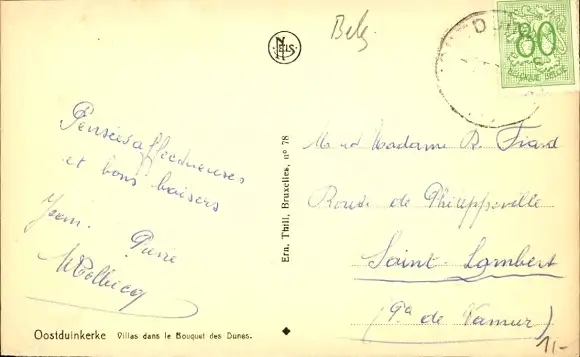 Belg
NELS
D
80
c
BELGIQUE-BELGIË
Pensées affectueuses
et bons baisers
Pierre
Ern. Thill, Bruxelles, n° 78
M et Madame R. Fiard
Route de Philippeville
Saint-Lambert
(Pce de Namur)
1,-
Oostduinkerke Villas dans le Bouquet des Dunes.